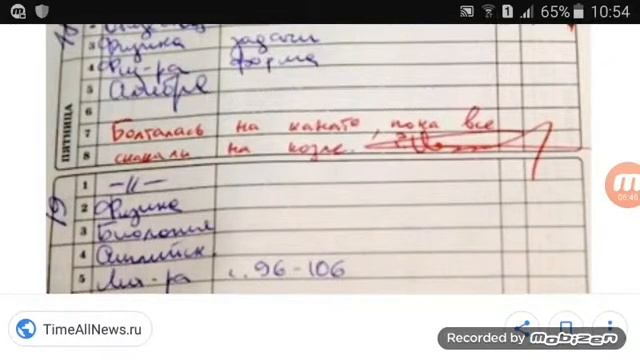 1 65% 10:54
3 Физика задачи
4 Физ-ра форма
5
6
7 Болталась на канате, пока все
8 скакали на козле.
ПЯТНИЦА
19
1 –//–
2 Физика
3 Биология
4 Английск.
5 Лит-ра с. 96-106
06:46
TimeAllNews.ru
Recorded by mobizen